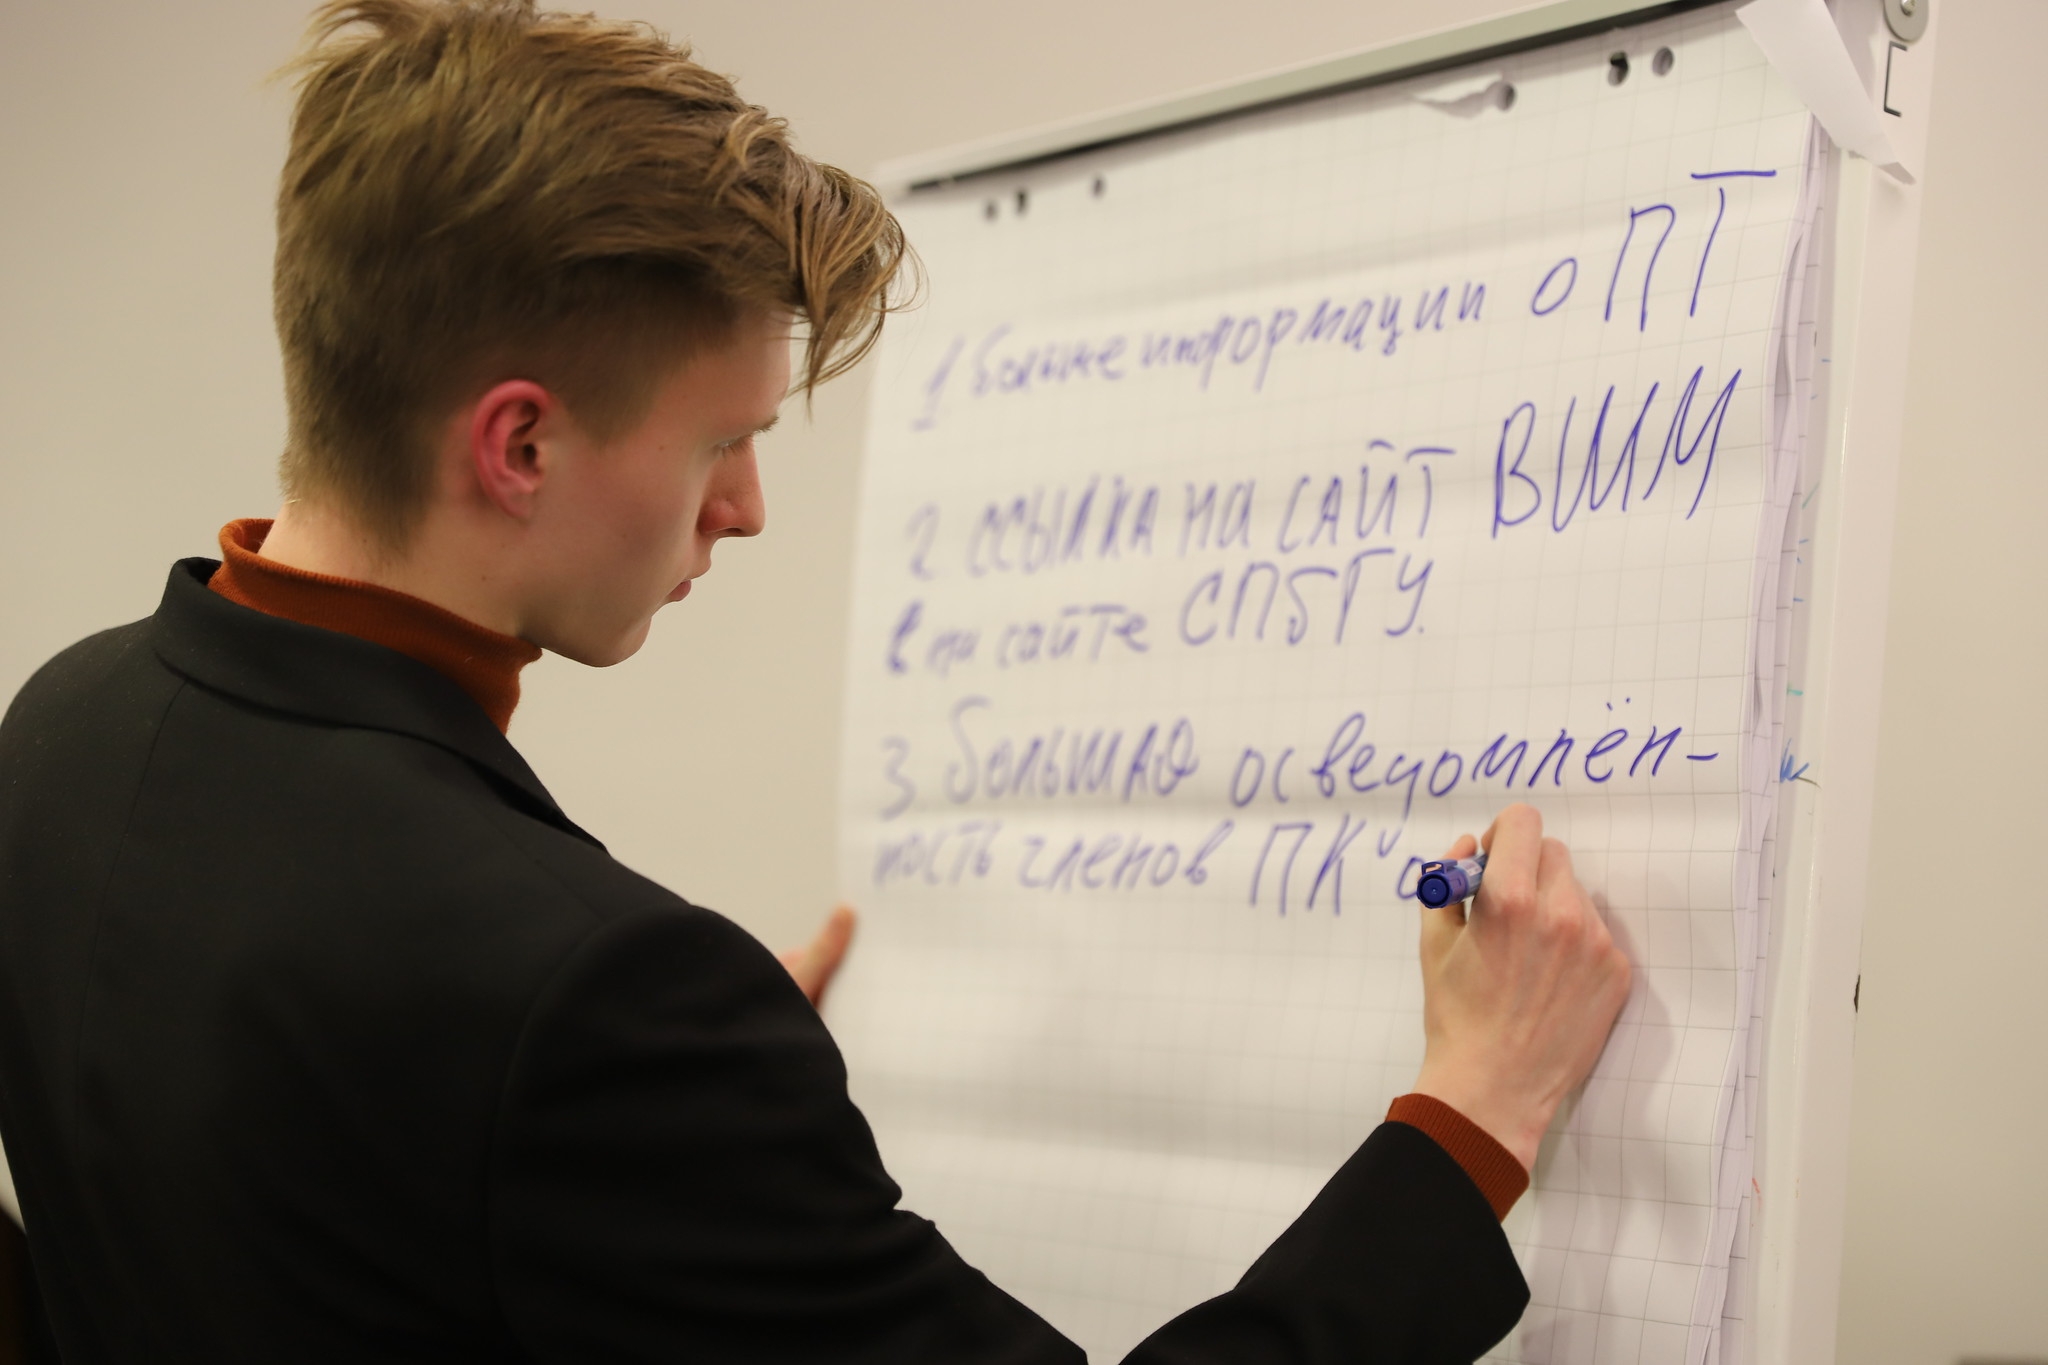 1 больше информации о ПТ
2 ссылка на сайт ВШМ
на сайте СПбГУ.
3 Большая осведомлён-
ность членов ПК о